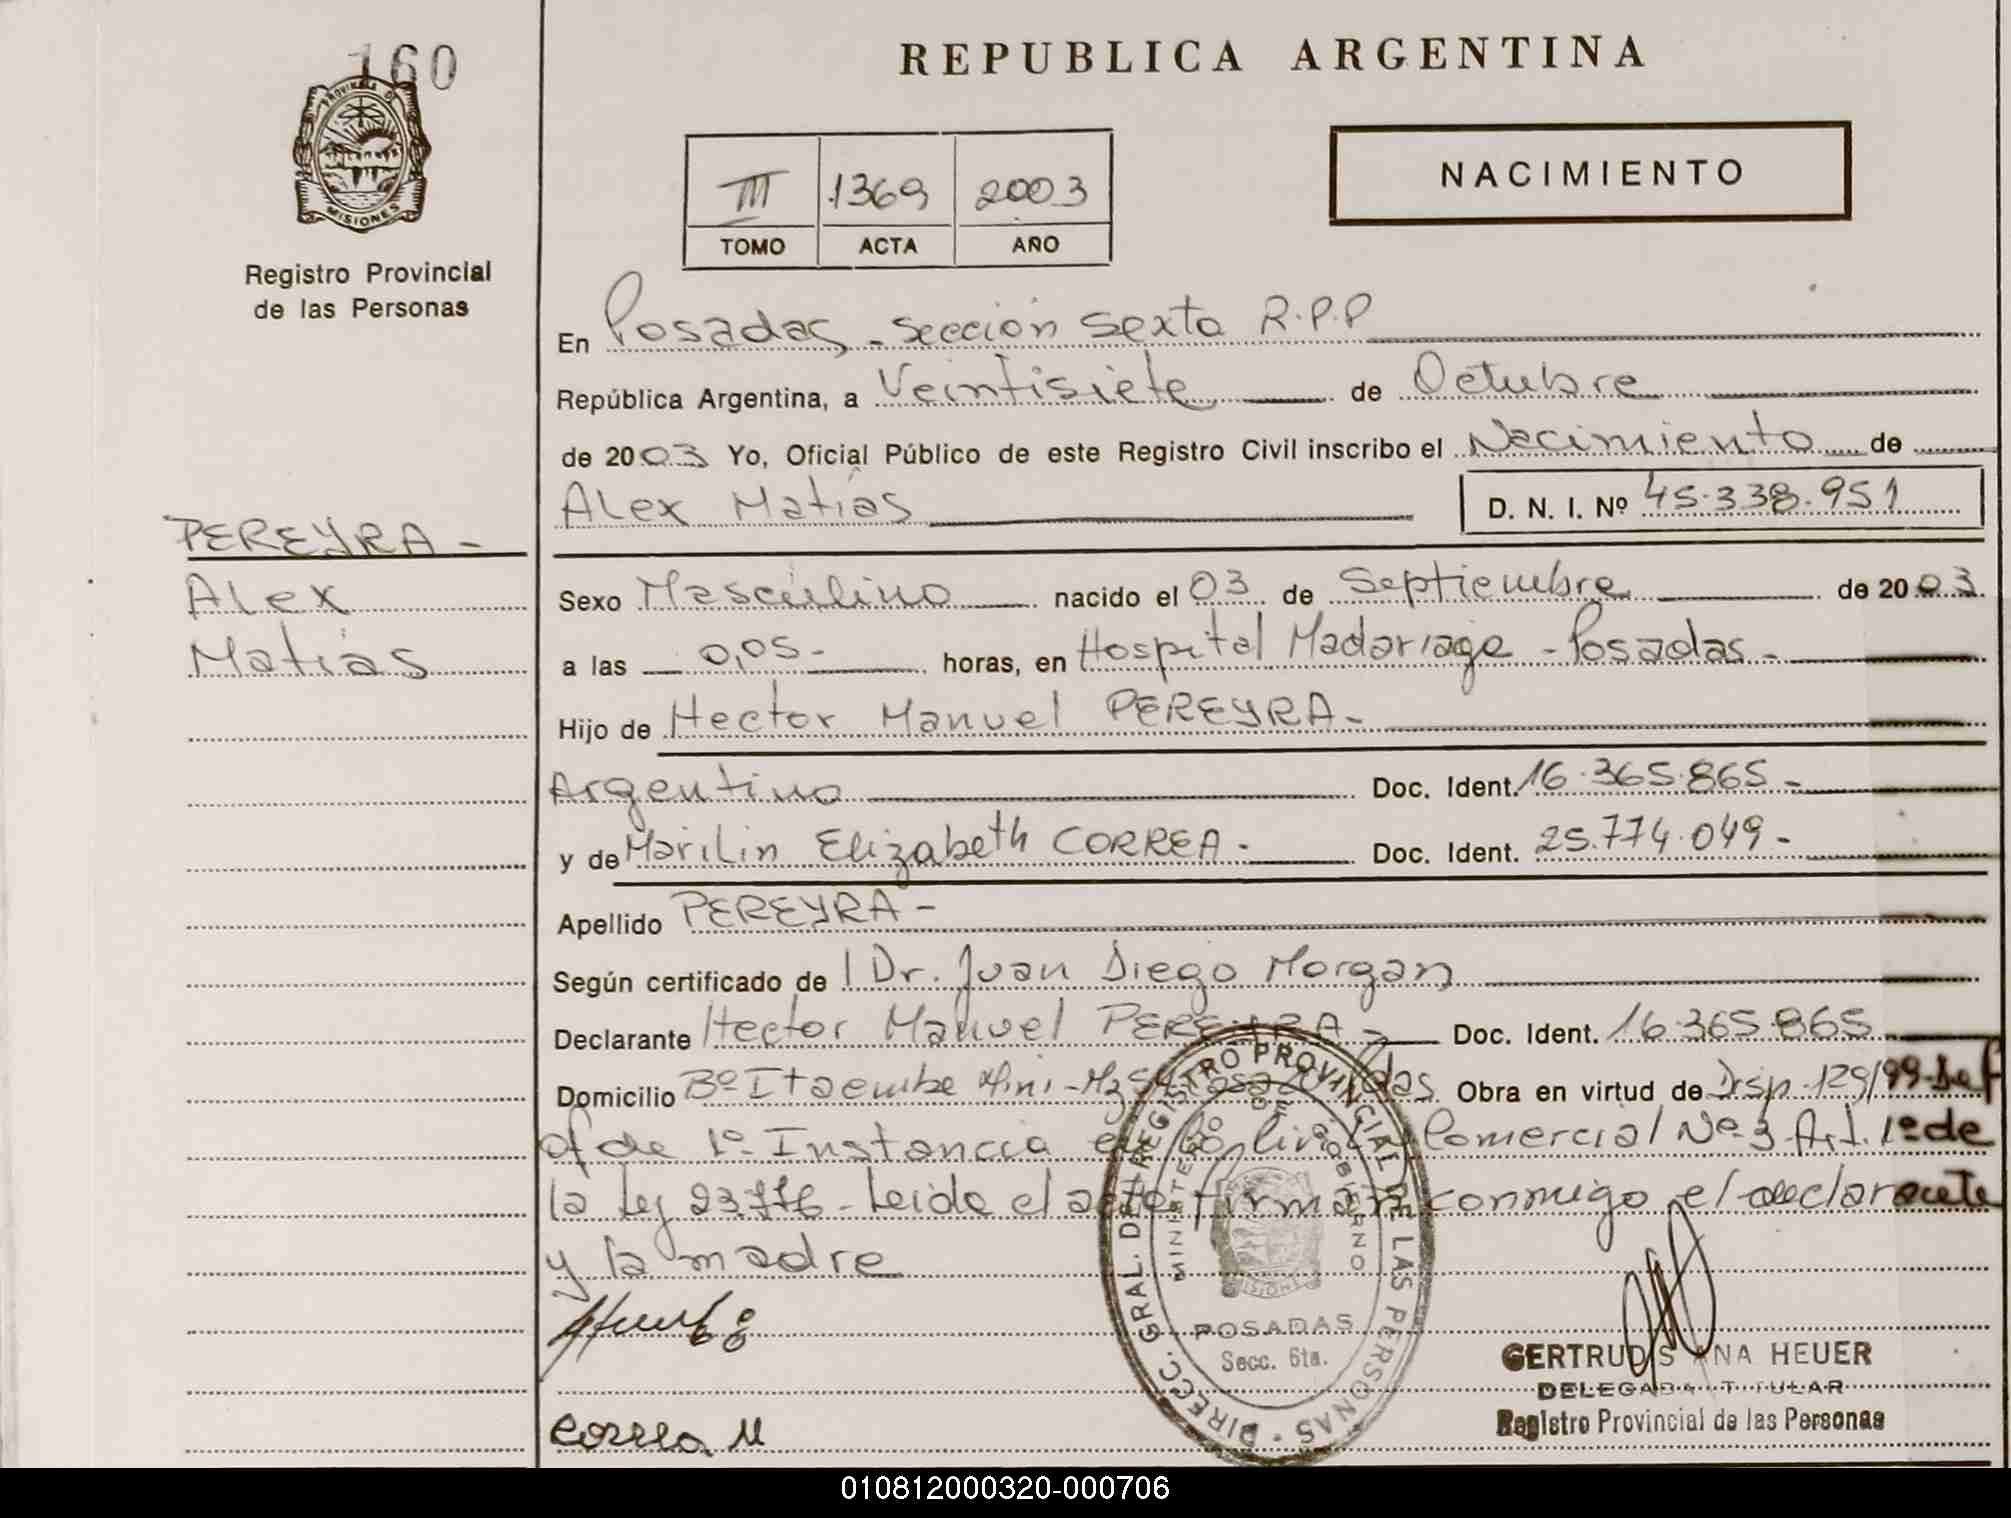 160
PROVINCIA DE
MISIONES
Registro Provincial
de las Personas
REPUBLICA ARGENTINA
III 1369 2003
TOMO ACTA AÑO
NACIMIENTO
En Posadas, - sección sexta R.P.P
República Argentina, a Veintisiete de Octubre
de 2003 Yo, Oficial Público de este Registro Civil inscribo el Nacimiento de
Alex Matías D. N. I. Nº 45.338.951
PEREYRA -
Alex
Matías
Sexo Masculino nacido el 03 de Septiembre de 2003
a las 0,05- horas, en Hospital Madariaga - Posadas -
Hijo de Hector Manuel PEREYRA -
Argentino Doc. Ident. 16.365.865 -
y de Marilin Elizabeth CORREA - Doc. Ident. 25.774.049 -
Apellido PEREYRA -
Según certificado de l Dr. Juan Diego Morgan
Declarante Hector Manuel PEREYRA - Doc. Ident. 16.365.865
Domicilio Bº Itaembe Mini - Mz Obra en virtud de Disp. 129/99 -
de 1º Instancia Comercial Nº 3 - Art. 1º de
la Ley 23.776 - Leida el acta firman conmigo el declarante
y la madre
DIRECC. GRAL. DEL REGISTRO PROVINCIAL DE LAS PERSONAS
MINISTERIO DE GOBIERNO
MISIONES
POSADAS
Secc. 6ta.
Correa M
GERTRUDIS ANA HEUER
DELEGADA TITULAR
Registro Provincial de las Personas
010812000320-000706